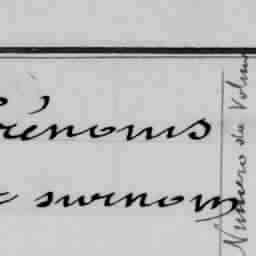 rénoms
surnom
Numéro du Volume